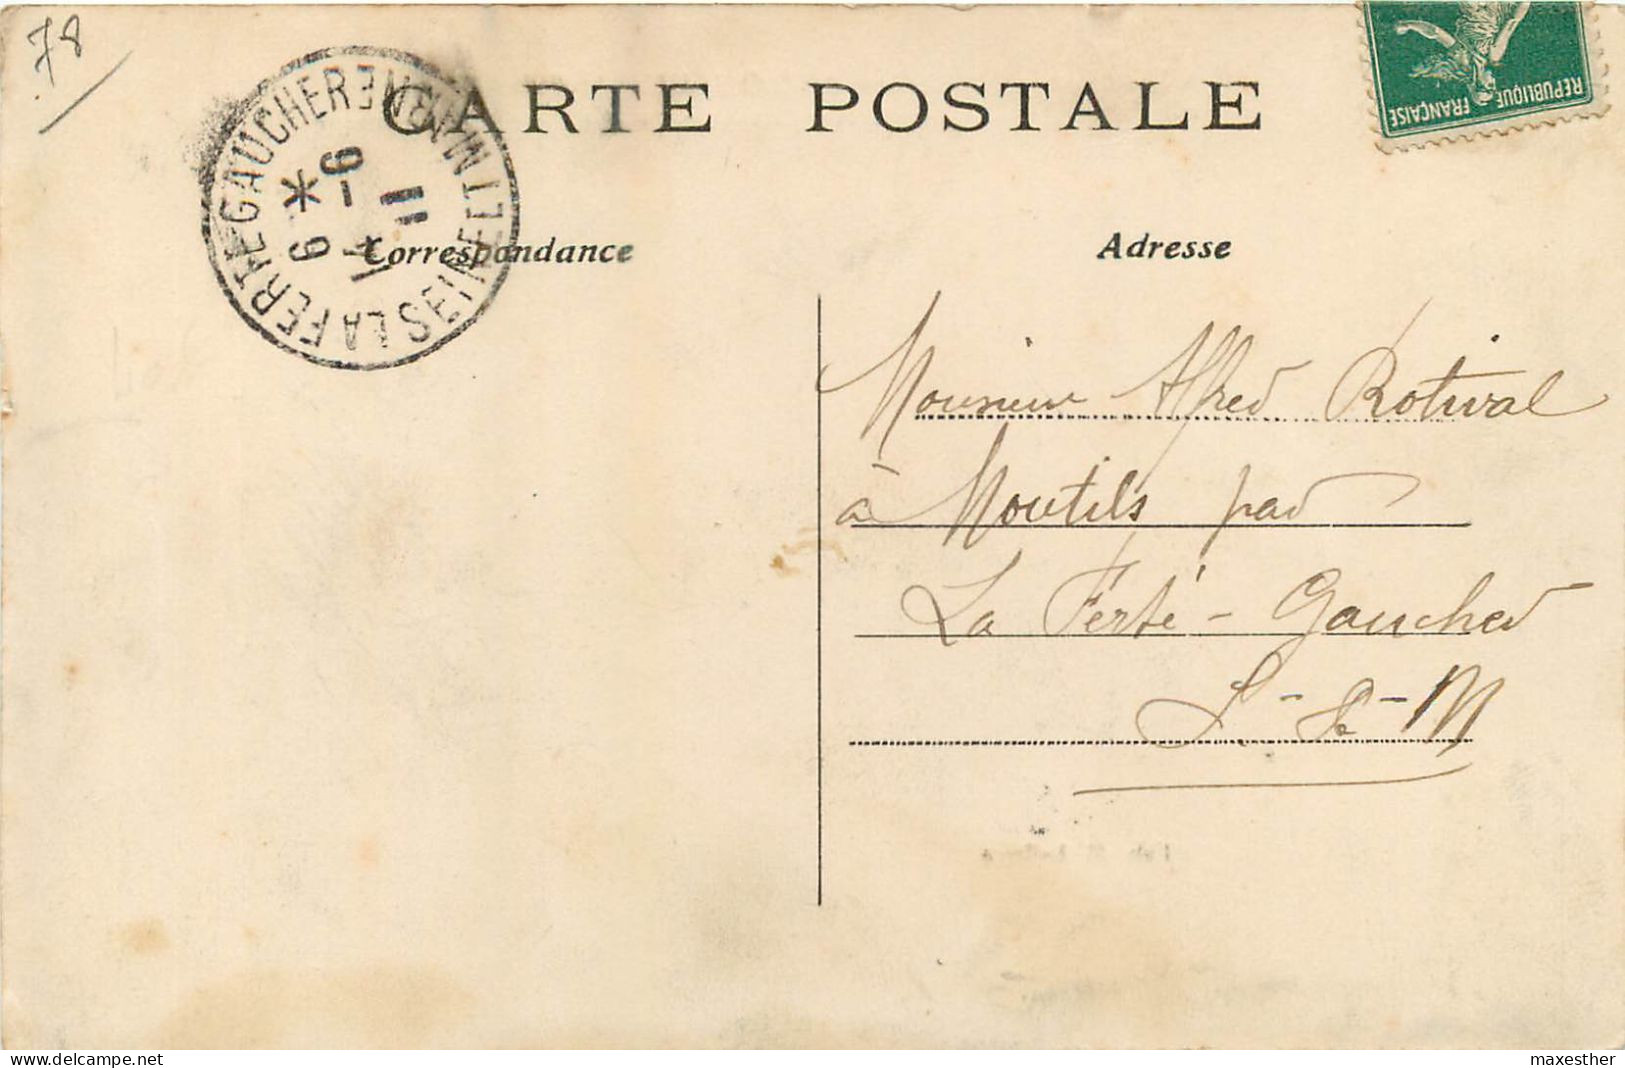 78
CARTE POSTALE
LA FERTE GAUCHER SEINE ET MARNE
* 9-11
9
Correspondance
Adresse
REPUBLIQUE
FRANÇAISE
Monsieur Alfred Rotival
à Moutils par
La Ferté-Gaucher
S-&-M
delcampe.net
maxesther